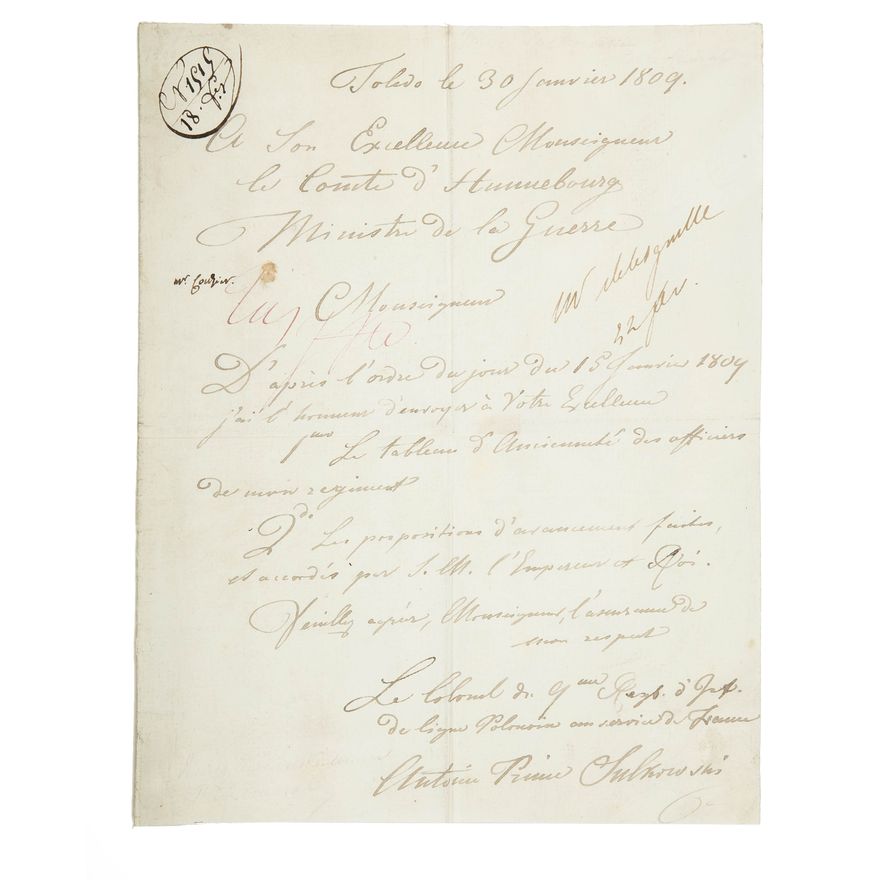 N 1515
18. fer
Toledo le 30 Janvier 1809.
A Son Excellence Monseigneur
le Comte d'Hunnebourg
Ministre de la Guerre
Mr
22 fer.
Monseigneur
D'après l'ordre du jour du 15 Janvier 1809
j'ai l'honneur d'envoyer à Votre Excellence
1mo Le tableau d'Ancienneté des officiers
de mon regiment
2do Les propositions d'avancement faites,
et accordés par S. M. l'Empereur et Roi.
Veuillez agréer, Monseigneur, l'assurance de
mon respect
Le Colonel du 9me Reg. d'Inf.
de ligne Polonois au service de France
Antoine Prince Sulkowski